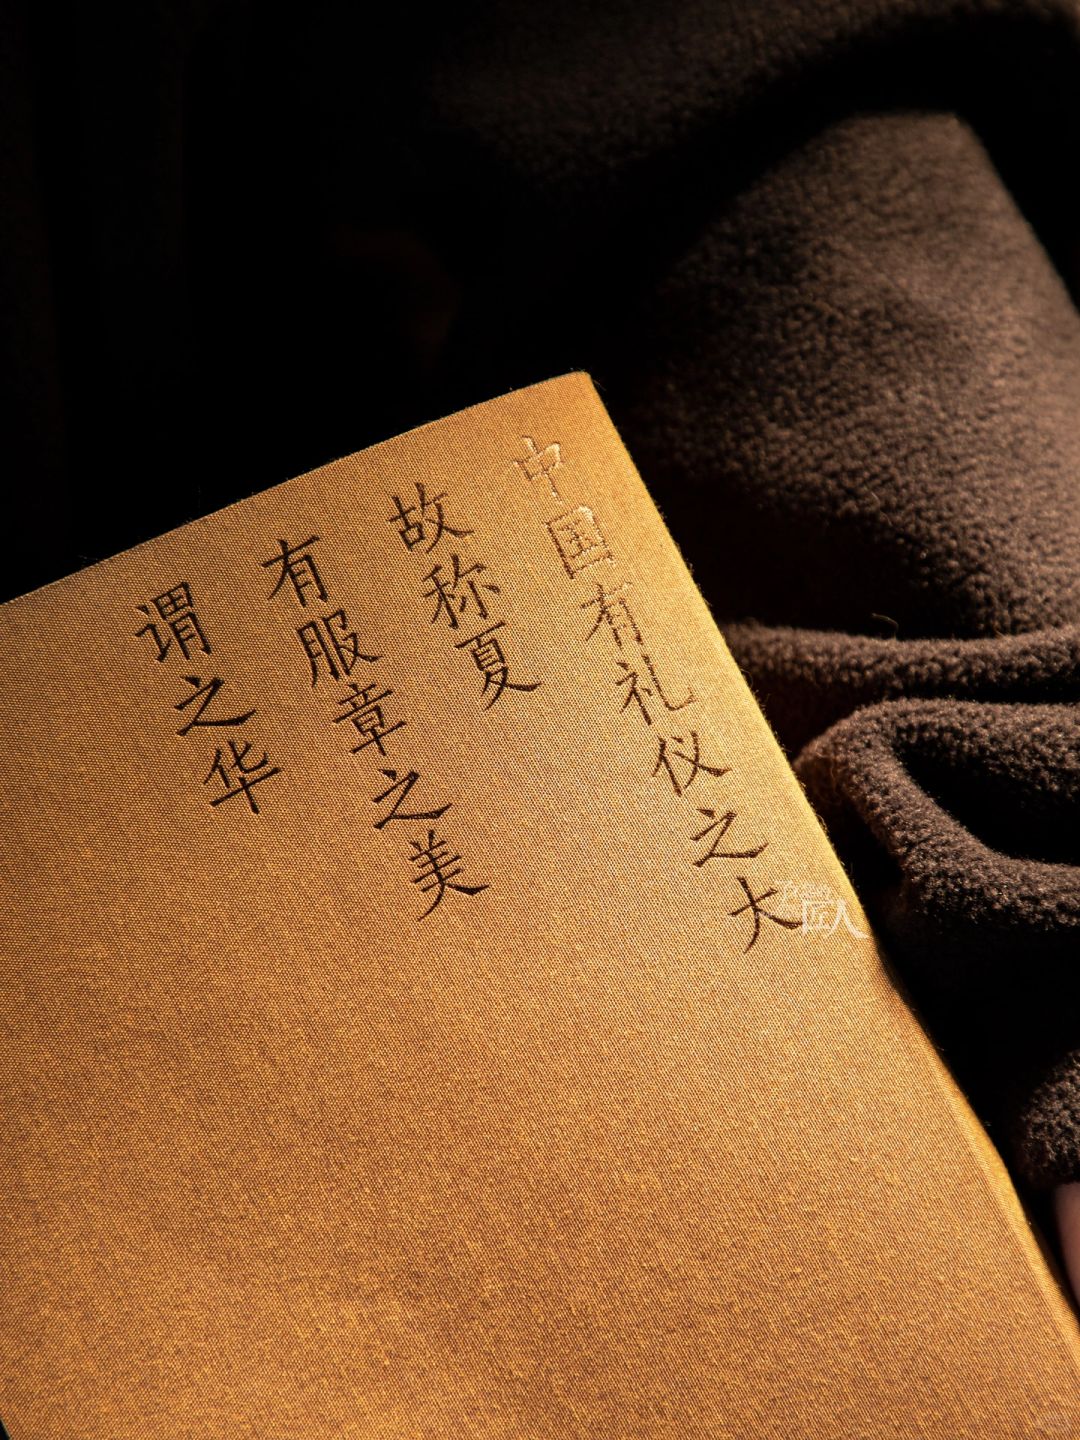 中国有礼仪之大
故称夏
有服章之美
谓之华
匠人